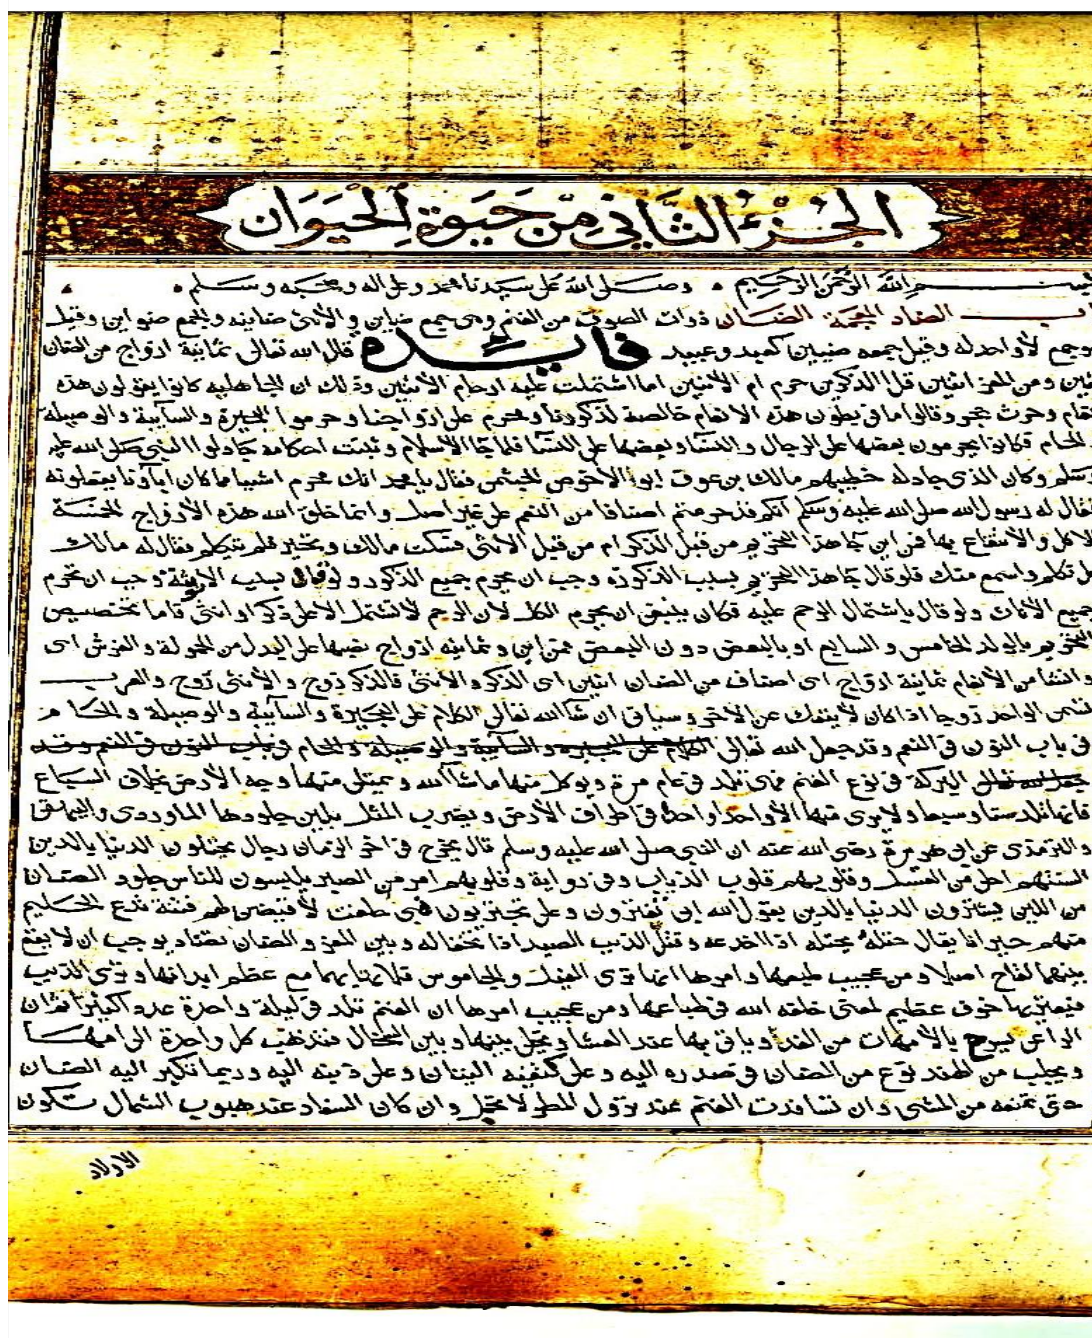 الجزء الثاني من حيوة الحيوان
بسم الله الرحمن الرحيم وصلى الله على سيدنا محمد وعلى اله وصحبه وسلم
باب الضاد المعجمة الضان ذوات الصوف من الغنم وهى جمع ضاين والانثى ضاينه والجمع ضواين وقيل
وجمع لا واحد له وقيل جمعه ضيين كعبد وعبيد فايدة قال الله تعالى ثمانية ازواج من الضان
اثنين ومن المعز اثنين قل الذكرين حرم ام الانثيين اما اشتملت عليه ارحام الانثيين وذلك ان الجاهلية كانوا يقولون هذه
انعام وحرث حجر وقالوا ما في بطون هذه الانعام خالصة لذكورنا ومحرم على ازواجنا وحرموا البحيرة والسآئبة والوصيلة
والحام فكانوا يحرمون بعضها على الرجال والنسآ وبعضها على النسآ فلما جآ الاسلام وثبتت احكامه جادلوا النبي صلى الله عليه
وسلم وكان الذى جادله خطيبهم مالك بن عوف ابو الاحوص الجشمى فقال يا محمد انك تحرم اشيا ما كان اباؤنا يفعلونه
فقال له رسول الله صلى الله عليه وسلم انكم قد حرمتم اصنافا من النعم على غير اصل وانما خلق الله هذه الازواج الخمسة
للاكل والانتفاع بها فمن اين جا هذا التحريم من قبل الذكر ام من قبل الانثى فسكت مالك وتحير فلم يتكلم فقال له مالك
بل تكلم واسمع منك فلو قال جا هذا التحريم بسبب الذكورة وجب ان يحرم جميع الذكور ولو قال بسبب الانوثة وجب ان تحرم
جميع الاناث ولو قال باشتمال الرحم عليه فكان ينبغى ان يحرم الكل لان الرحم لا تشتمل الا على ذكر او انثى فاما تخصيص
التحريم بالولد الخامس والسابع او بالبعض دون البعض فمن اين وثمانية ازواج نصبها على البدل من الحمولة والفرش اى
وانشا من الانعام ثمانية ازواج اى اصناف من الضان اثنين اى الذكر والانثى فالذكر زوج والانثى زوج والعرب
تسمى الواحد زوجا اذا كان لا ينفك عن الاخر وسياتى ان شا الله تعالى الكلام على البحيرة والسآئبة والوصيلة والحام
فى باب النون فى النعم وقد جعل الله تعالى الكلام على البحيرة والسآئبة والوصيلة والحام فى باب النون فى النعم وقد
جعل الله تعالى البركة فى نوع الغنم فهى تلد فى عام مرة ويوكل منها ما شآ الله ويمتلى منها وجه الارض بخلاف السباع
فانها تلد ستا وسبعا ولا يرى منها الا واحدا واحدا فى اطراف الارض ويضرب المثل بلين جلودها الماوردى والبيهقى
والترمذى عن ابى هريرة رضى الله عنه ان النبى صلى الله عليه وسلم قال يخرج فى اخر الزمان رجال يختلون الدنيا بالدين
السنتهم احلى من العسل وقلوبهم قلوب الذياب وفى رواية وقلوبهم امر من الصبر يلبسون للناس جلود الضان
من اللين يشترون الدنيا بالدين يقول الله ابى تغترون وعلى تجتريون فبى حلفت لاقيضن لهم فتنة تدع الحليم
منهم حيرانا يقال ختله يختله اذا خدعه وختل الذيب الصيد اذا تخفى له وبين المعز والضان تضاد يوجب ان لا يقع
بينهما لقاح اصلا ومن عجيب طبعها وامرها انها ترى الفيل والجاموس فلا تهابهما مع عظم ابدانها وترى الذيب
فيعتريها خوف عظيم لمعنى خلقه الله فى طباعها ومن عجيب امرها ان الغنم تلد فى ليلة واحدة عددا كثيرا ثم ان
الراعى يسرح بالامهات من الغد وياتى بها عند العشا ويخلى بينها وبين السخال فتذهب كل واحدة الى امها
ويجلب من الهند نوع من الضان فى صدره الية وعلى كتفيه اليتان وعلى ذنبه الية وربما تكبر الية الضان
حتى تمنعه من المشى وان تسافدت الغنم عند نزول المطر لا تحمل وان كان السفاد عند هبوب الشمال تكون
الاولاد